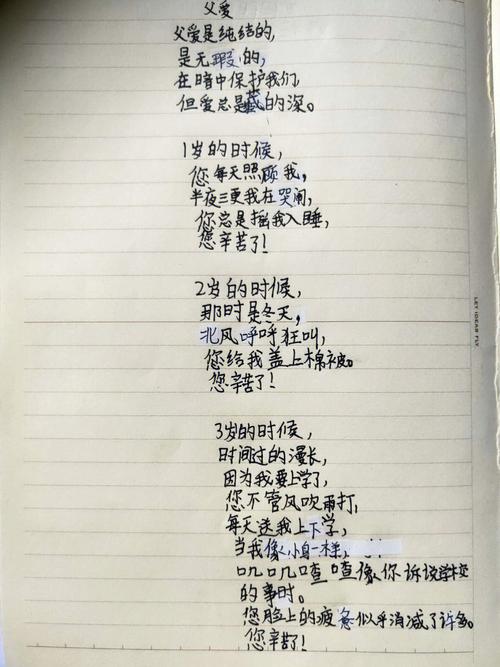 父爱
父爱是纯结的,
是无瑕的,
在暗中保护我们
但爱总是藏的深。
1岁的时候,
您每天照顾我,
半夜三更我在哭闹,
您总是摇我入睡,
您辛苦了!
2岁的时候,
那时是冬天,
北风呼呼狂叫,
您给我盖上棉被。
您辛苦了!
3岁的时候,
时间过的漫长,
因为我要上学了,
您不管风吹雨打,
每天送我上下学,
当我像小鸟一样,
叽叽喳喳像你诉说学校
的事时。
您脸上的疲惫似乎消减了许多。
您辛苦了!
LET IDEAR FLY